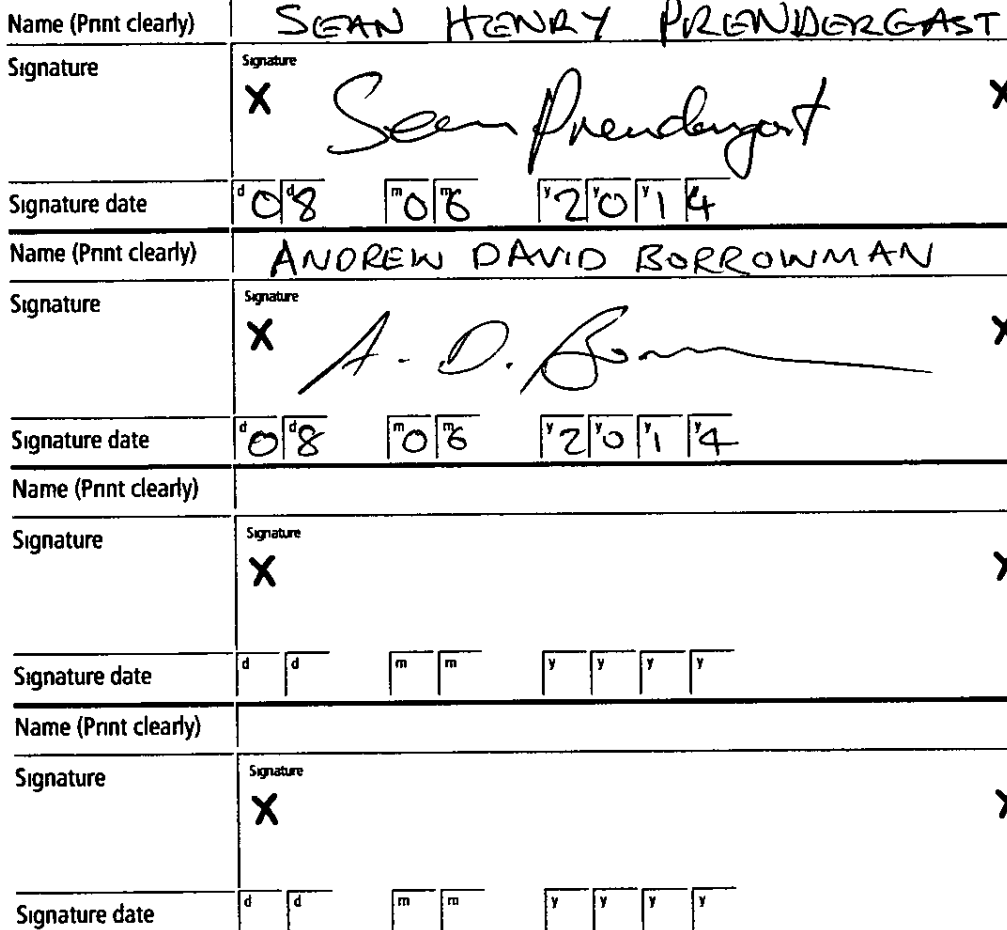 Name (Print clearly) SEAN HENRY PRENDERGAST
Signature Signature
X Sean Prendergast X
Signature date d0 d8 m0 m6 y2 y0 y1 y4
Name (Print clearly) ANDREW DAVID BORROWMAN
Signature Signature
X A. D. Borrowman X
Signature date d0 d8 m0 m6 y2 y0 y1 y4
Name (Print clearly)
Signature Signature
X X
Signature date d d m m y y y y
Name (Print clearly)
Signature Signature
X X
Signature date d d m m y y y y